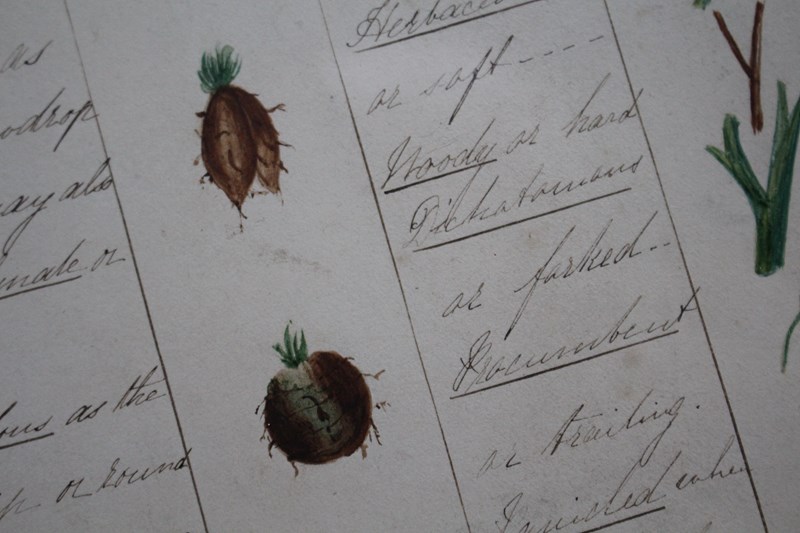 as
odrop
ay also
nate or
ous as the
p or round
Herbaceo
or soft - - - -
Woody or hard
Dichotomous
or forked - -
Procumbent
or trailing.
when